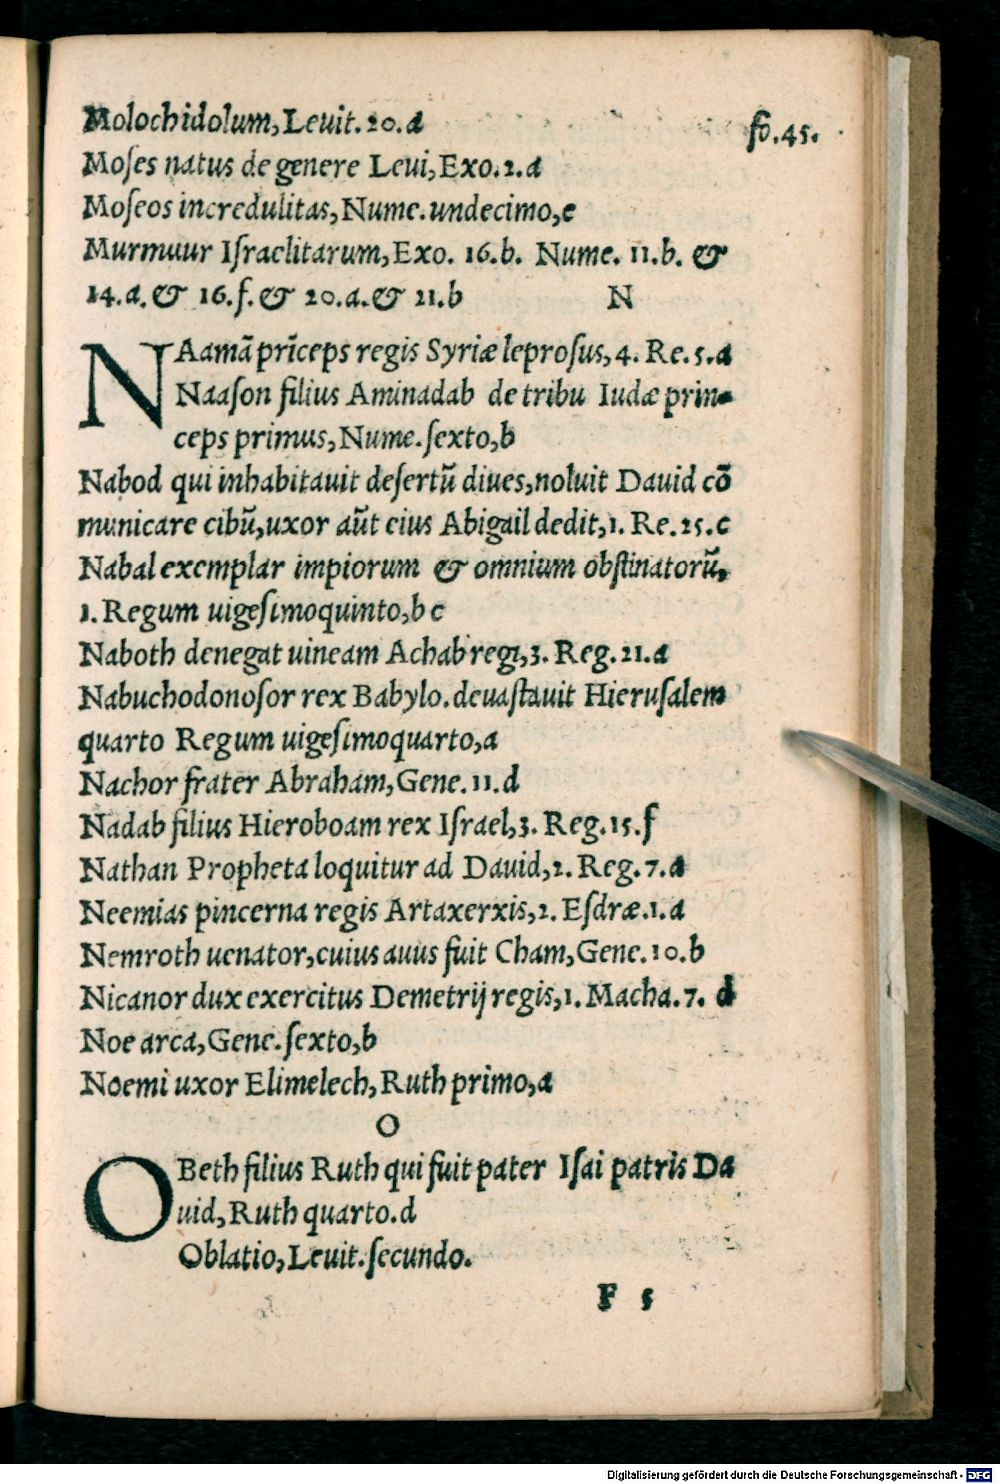 Molochidolum, Leuit. 20. a
fo. 45.
Moſes natus de genere Leui, Exo. 2. a
Moſeos incredulitas, Nume. undecimo, c
Murmuur Iſraelitarum, Exo. 16. b. Nume. 11. b. &
14. a. & 16. f. & 20. a. & 21. b N
NAamã prĩceps regis Syriæ leproſus, 4. Re. 5. a
Naaſon filius Aminadab de tribu Iudæ prin-
ceps primus, Nume. ſexto, b
Nabod qui inhabitauit deſertũ diues, noluit Dauid cõ
municare cibũ, uxor aũt eius Abigail dedit, 1. Re. 25. c
Nabal exemplar impiorum & omnium obſtinatorũ,
1. Regum uigeſimoquinto, b c
Naboth denegat uineam Achab regi, 3. Reg. 21. a
Nabuchodonoſor rex Babylo. deuaſtauit Hieruſalem
quarto Regum uigeſimoquarto, a
Nachor frater Abraham, Gene. 11. d
Nadab filius Hieroboam rex Iſrael, 3. Reg. 15. f
Nathan Propheta loquitur ad Dauid, 2. Reg. 7. a
Neemias pincerna regis Artaxerxis, 2. Eſdræ. 1. a
Nemroth uenator, cuius auus fuit Cham, Gene. 10. b
Nicanor dux exercitus Demetrij regis, 1. Macha. 7. d
Noe arca, Gene. ſexto, b
Noemi uxor Elimelech, Ruth primo, a
O
OBeth filius Ruth qui fuit pater Iſai patris Da
uid, Ruth quarto. d
Oblatio, Leuit. ſecundo.
F 5
Digitalisierung gefördert durch die Deutsche Forschungsgemeinschaft - DFG